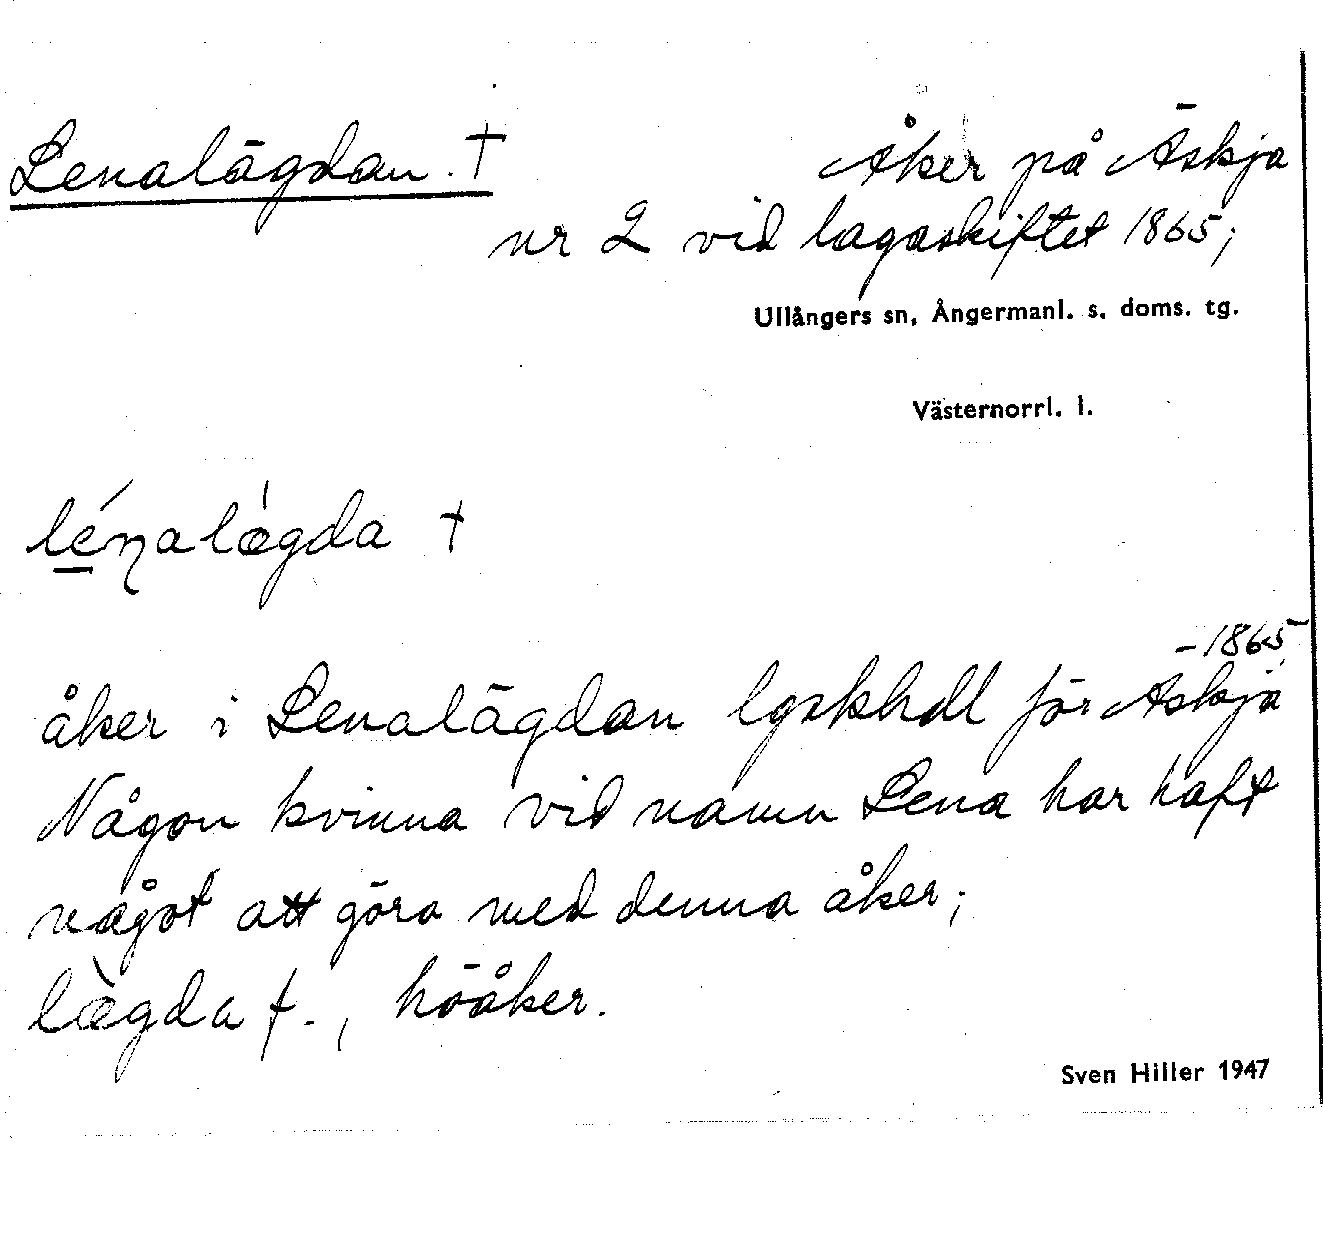 Lenalägdan. †
Åker på Äskja
nr 2 vid lagaskiftet 1865;
Ullångers sn, Ångermanl. s. doms. tg.
Västernorrl. l.
lénalægda †
åker i Lenalägdan lgskhdl för Äskja -1865
Någon kvinna vid namn Lena har haft
något att göra med denna åker;
lægda f., höåker.
Sven Hiller 1947